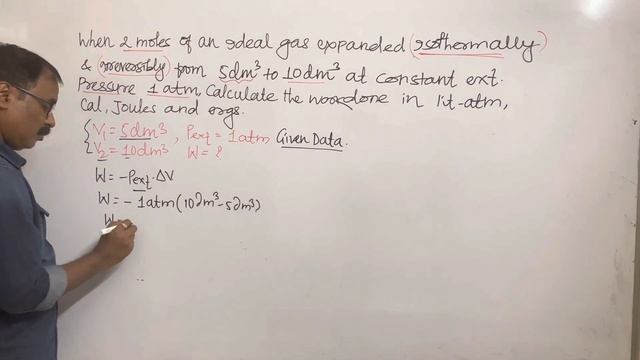 When 2 moles of an ideal gas expanded (isothermally)
& (irreversibly) from 5dm³ to 10dm³ at constant ext.
Pressure 1 atm, Calculate the workdone in lit-atm,
Cal, Joules and ergs.
V₁ = 5dm³, Pext = 1atm Given Data.
V₂ = 10dm³ W = ?
W = -Pext. ΔV
W = - 1atm (10dm³ - 5dm³)
W =